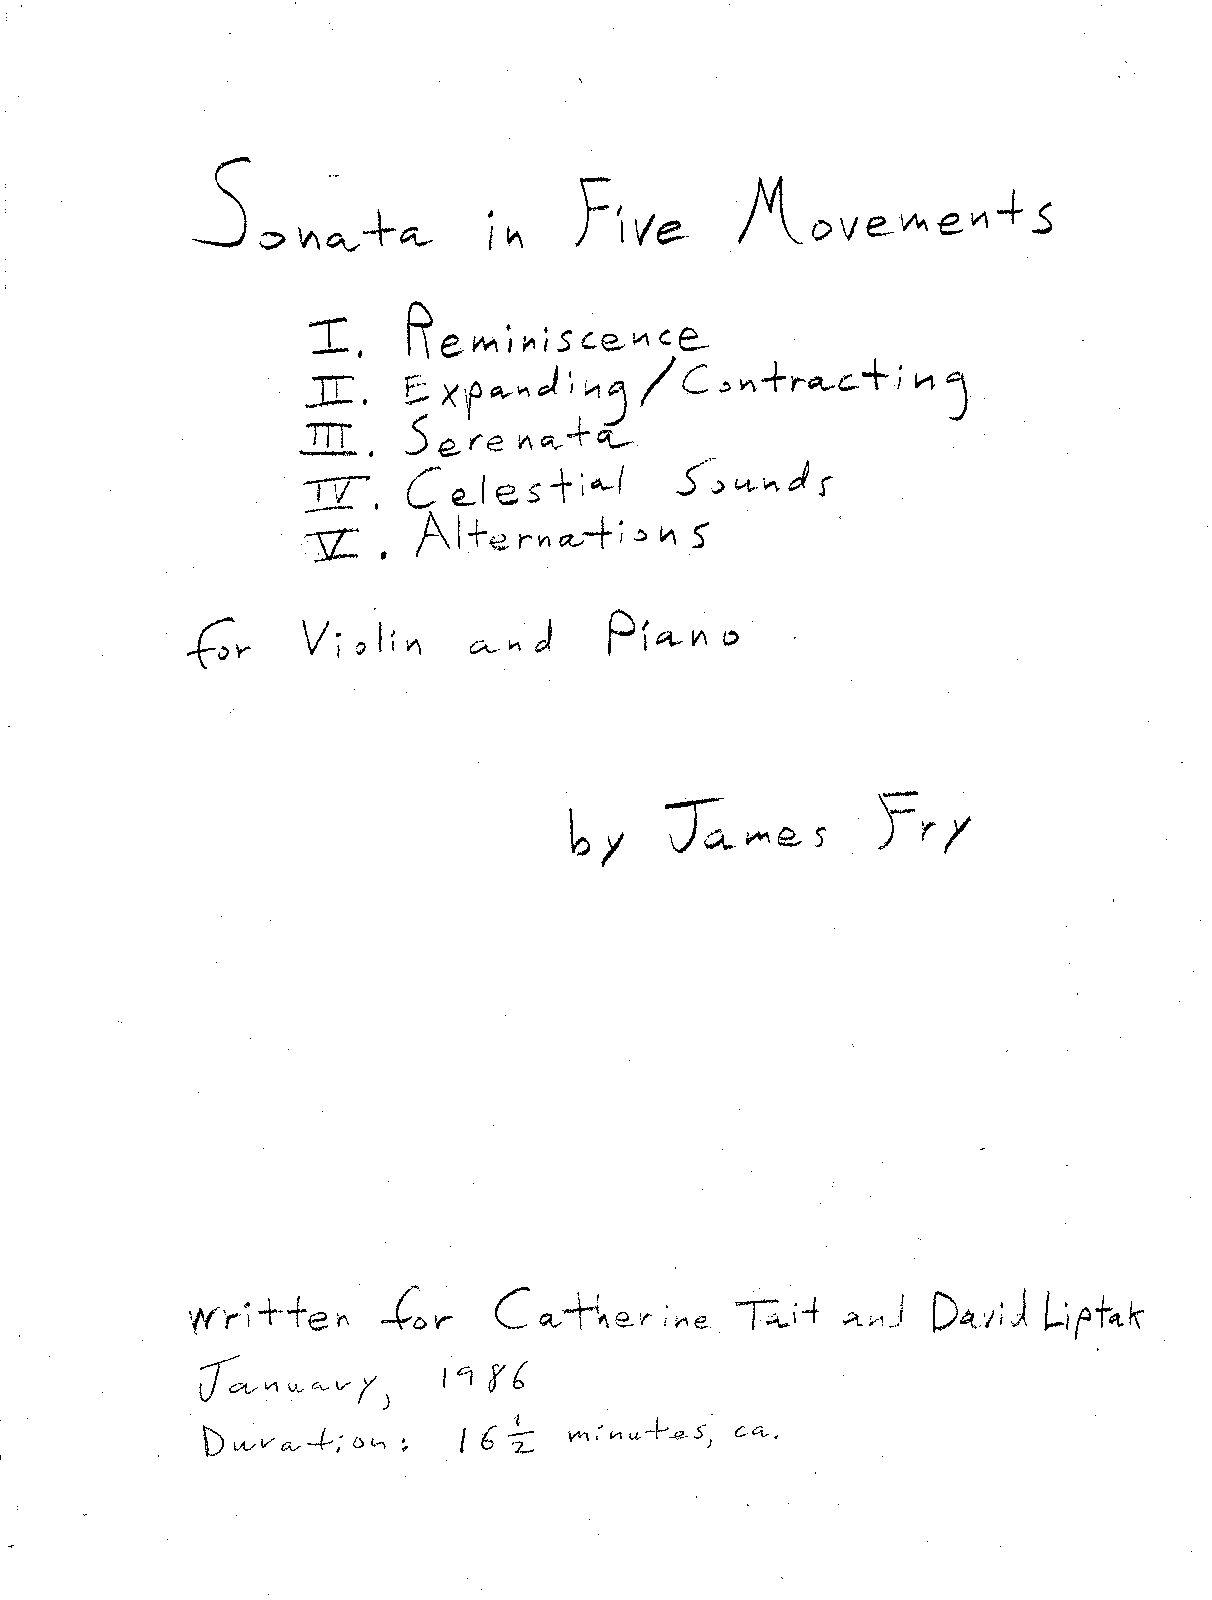 Sonata in Five Movements
I. Reminiscence
II. Expanding/Contracting
III. Serenata
IV. Celestial Sounds
V. Alternations
for Violin and Piano
by James Fry
written for Catherine Tait and David Liptak
January, 1986
Duration: 16 1/2 minutes, ca.